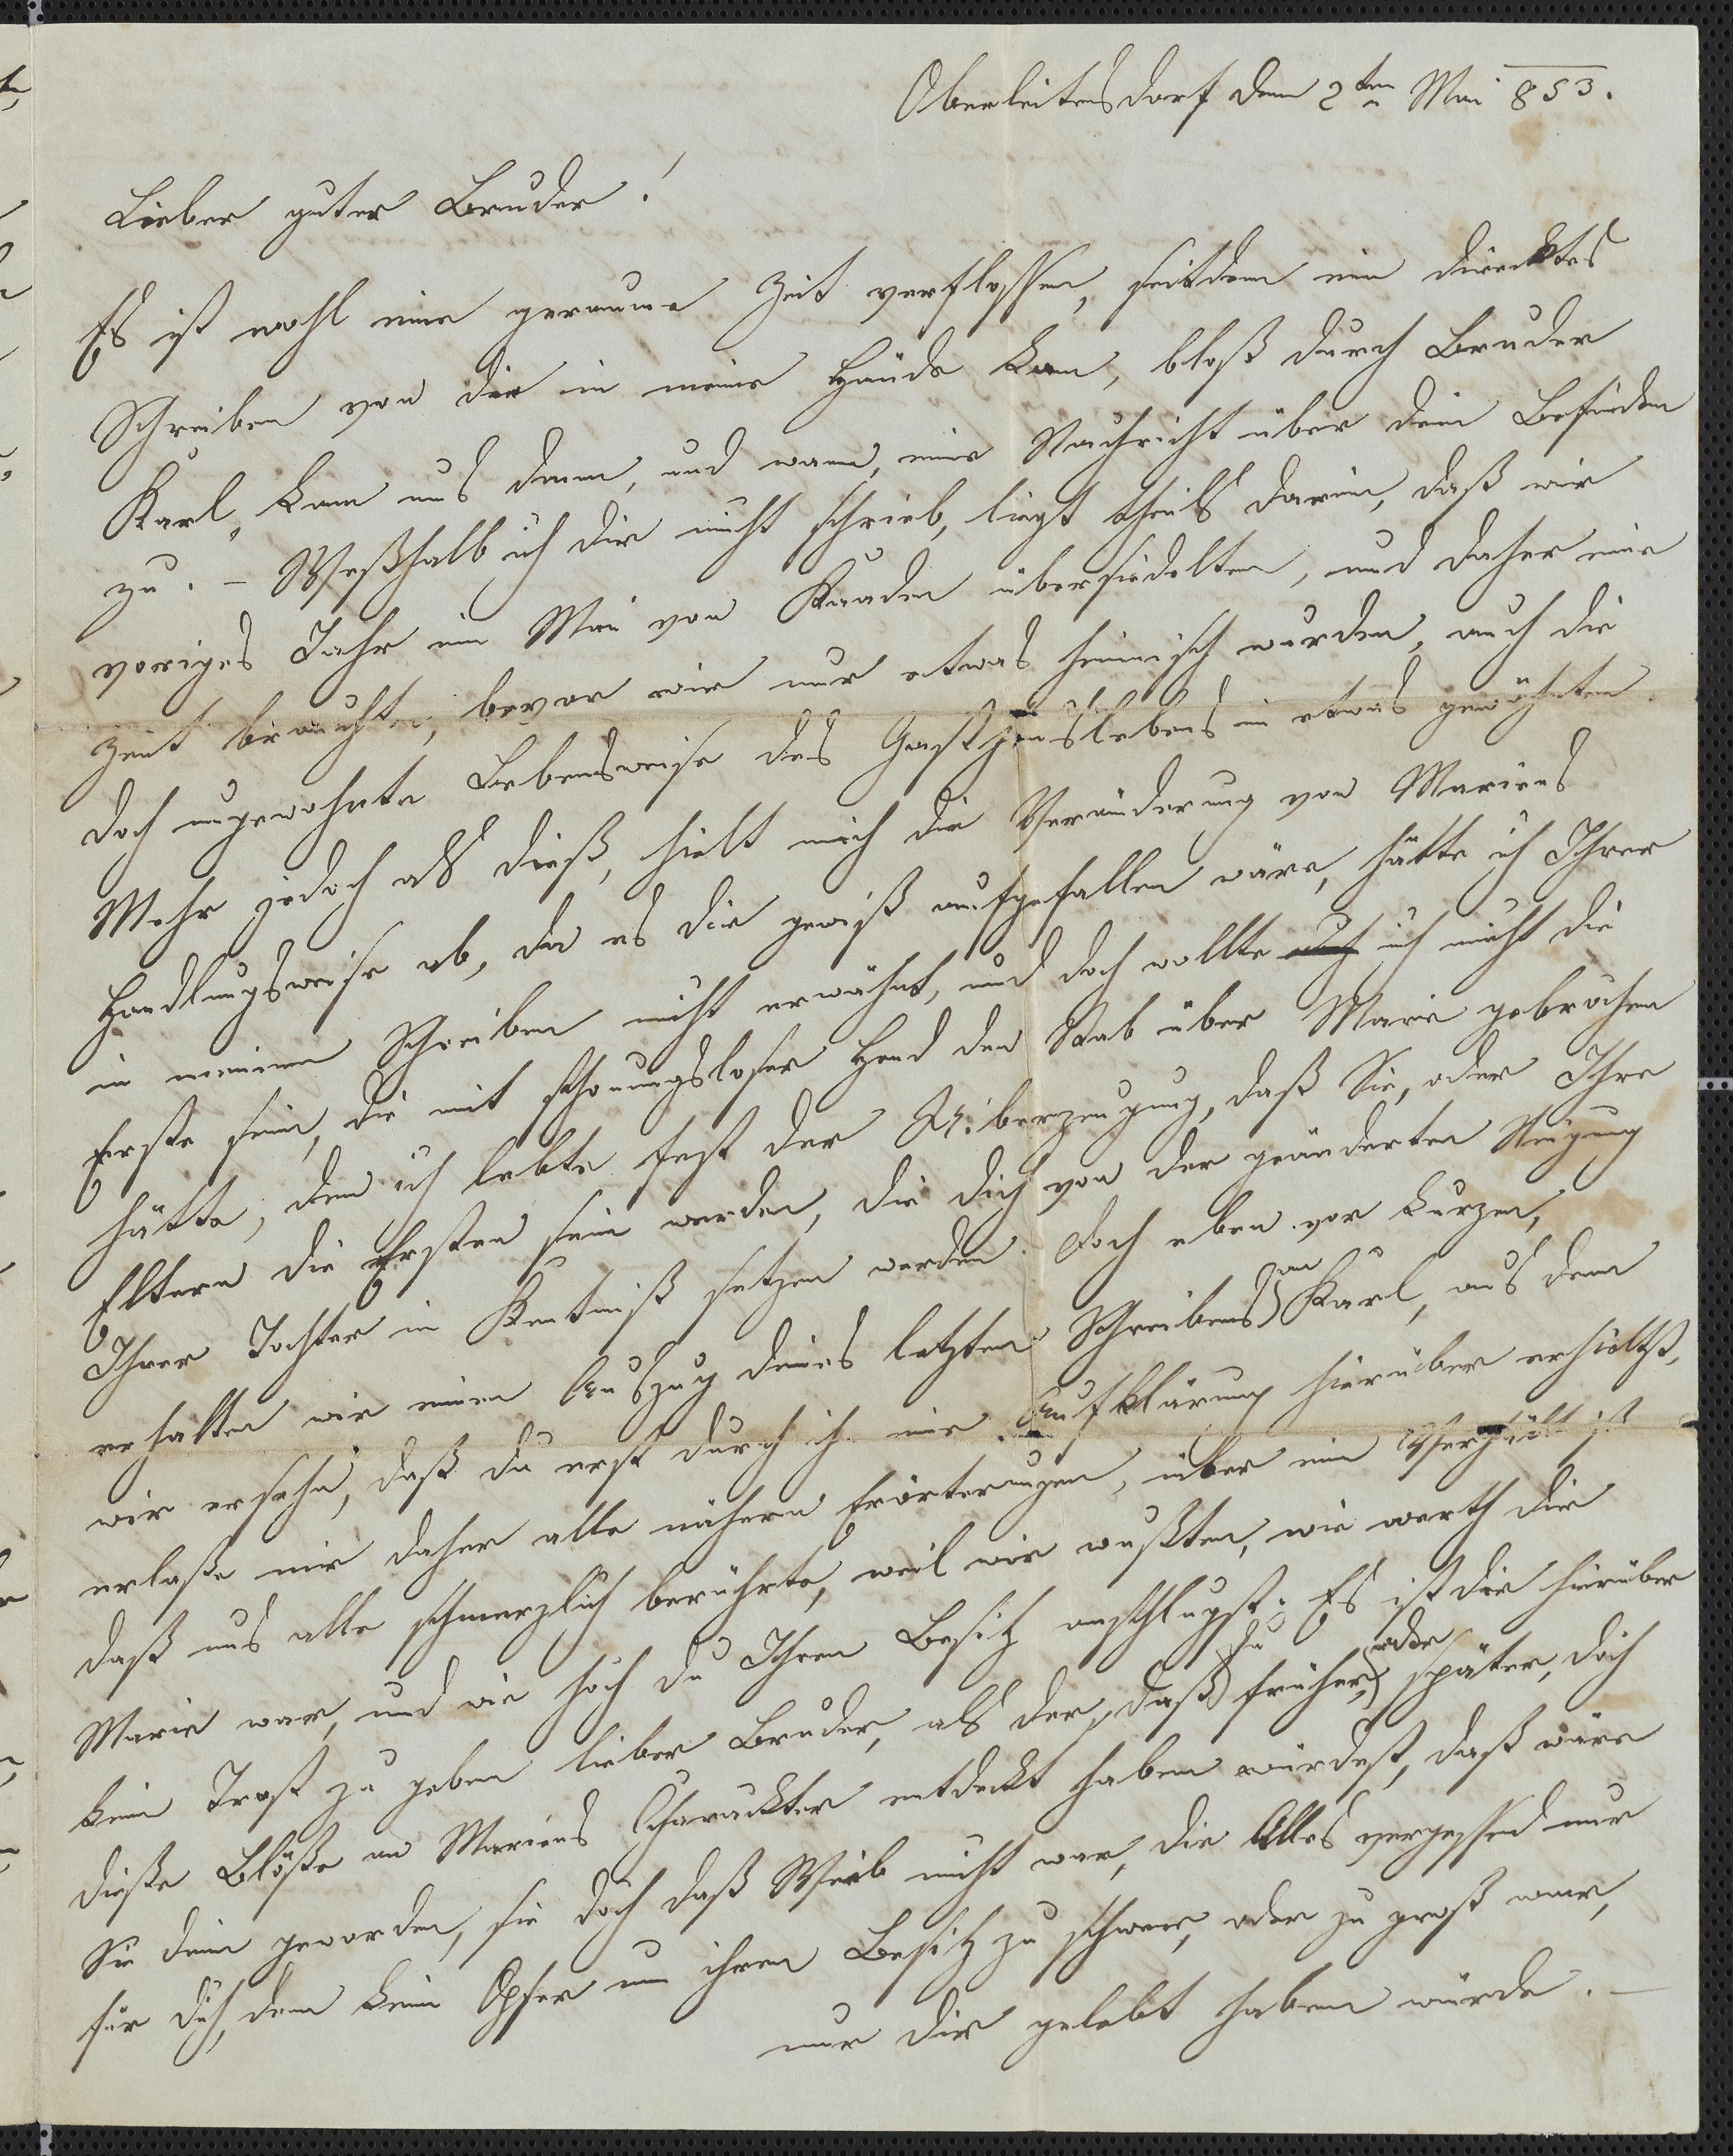 Oberleitensdorf dem 2ten Mai 853.
Lieber guter Bruder!
Es ist wohl eine geraume Zeit verflossen, seitdem ein direcktes
Schreiben von dir in meine Hände kam, bloß durch Bruder
Karl, kam uns dann, und wann, eine Nachricht über dein Befinden
zu. – Weßhalb ich dir nicht schrieb, liegt theils darin, daß wir
voriges Jahr im Mai von Kaaden übersiedelten, und daher eine
Zeit brauchten, bevor wir nur etwas heimisch wurden, auch die
doch ungewohnte Lebensweise des Gasthauslebens in etwas gewöhnten.
Mehr jedoch als dieß, hielt mich die Veränderung von Mariens
Handlungsweise ab, da es dir gewiß aufgefallen wäre, hätte ich Ihrer
in meinem Schreiben nicht erwähnt, und doch wollte ich nicht die
Erste sein, die mit schonungsloser Hand den Stab über Marie gebrochen
hätte, den ich lebte fest der Uiberzeugung, daß Sie, oder Ihre
Eltern die Ersten sein werden, die dich von der geänderten Neigung
Ihrer Tochter in Kentniß setzen werden. Doch eben vor kurzen,
erhalten wir einen Auszug deines letzten Schreibens an Karl, aus dem
wir ersehn, daß du erst durch ih eine Aufklärung hierüber erhieltst,
erlaße mir daher alle nähern Erörterungen, über ein Verhältniß
daß uns alle schmerzlich berührte, weil wir wußten, wie werth dir
Marie war, und wie hoch du Ihren Besitz anschlugst. Es ist dir hierüber
kein Trost zu geben lieber Bruder, als der, daß du früher, oder später, doch
dieße Blöße an Mariens Charackter entdeckt haben würdest, daß wäre
Sie dein geworden, sie doch daß Weib nicht war, die Alles vergessend nur
für dich, dem kein Opfer um ihren Besitz zu schwer, oder zu groß war,
nur dir gelebt haben würde. –